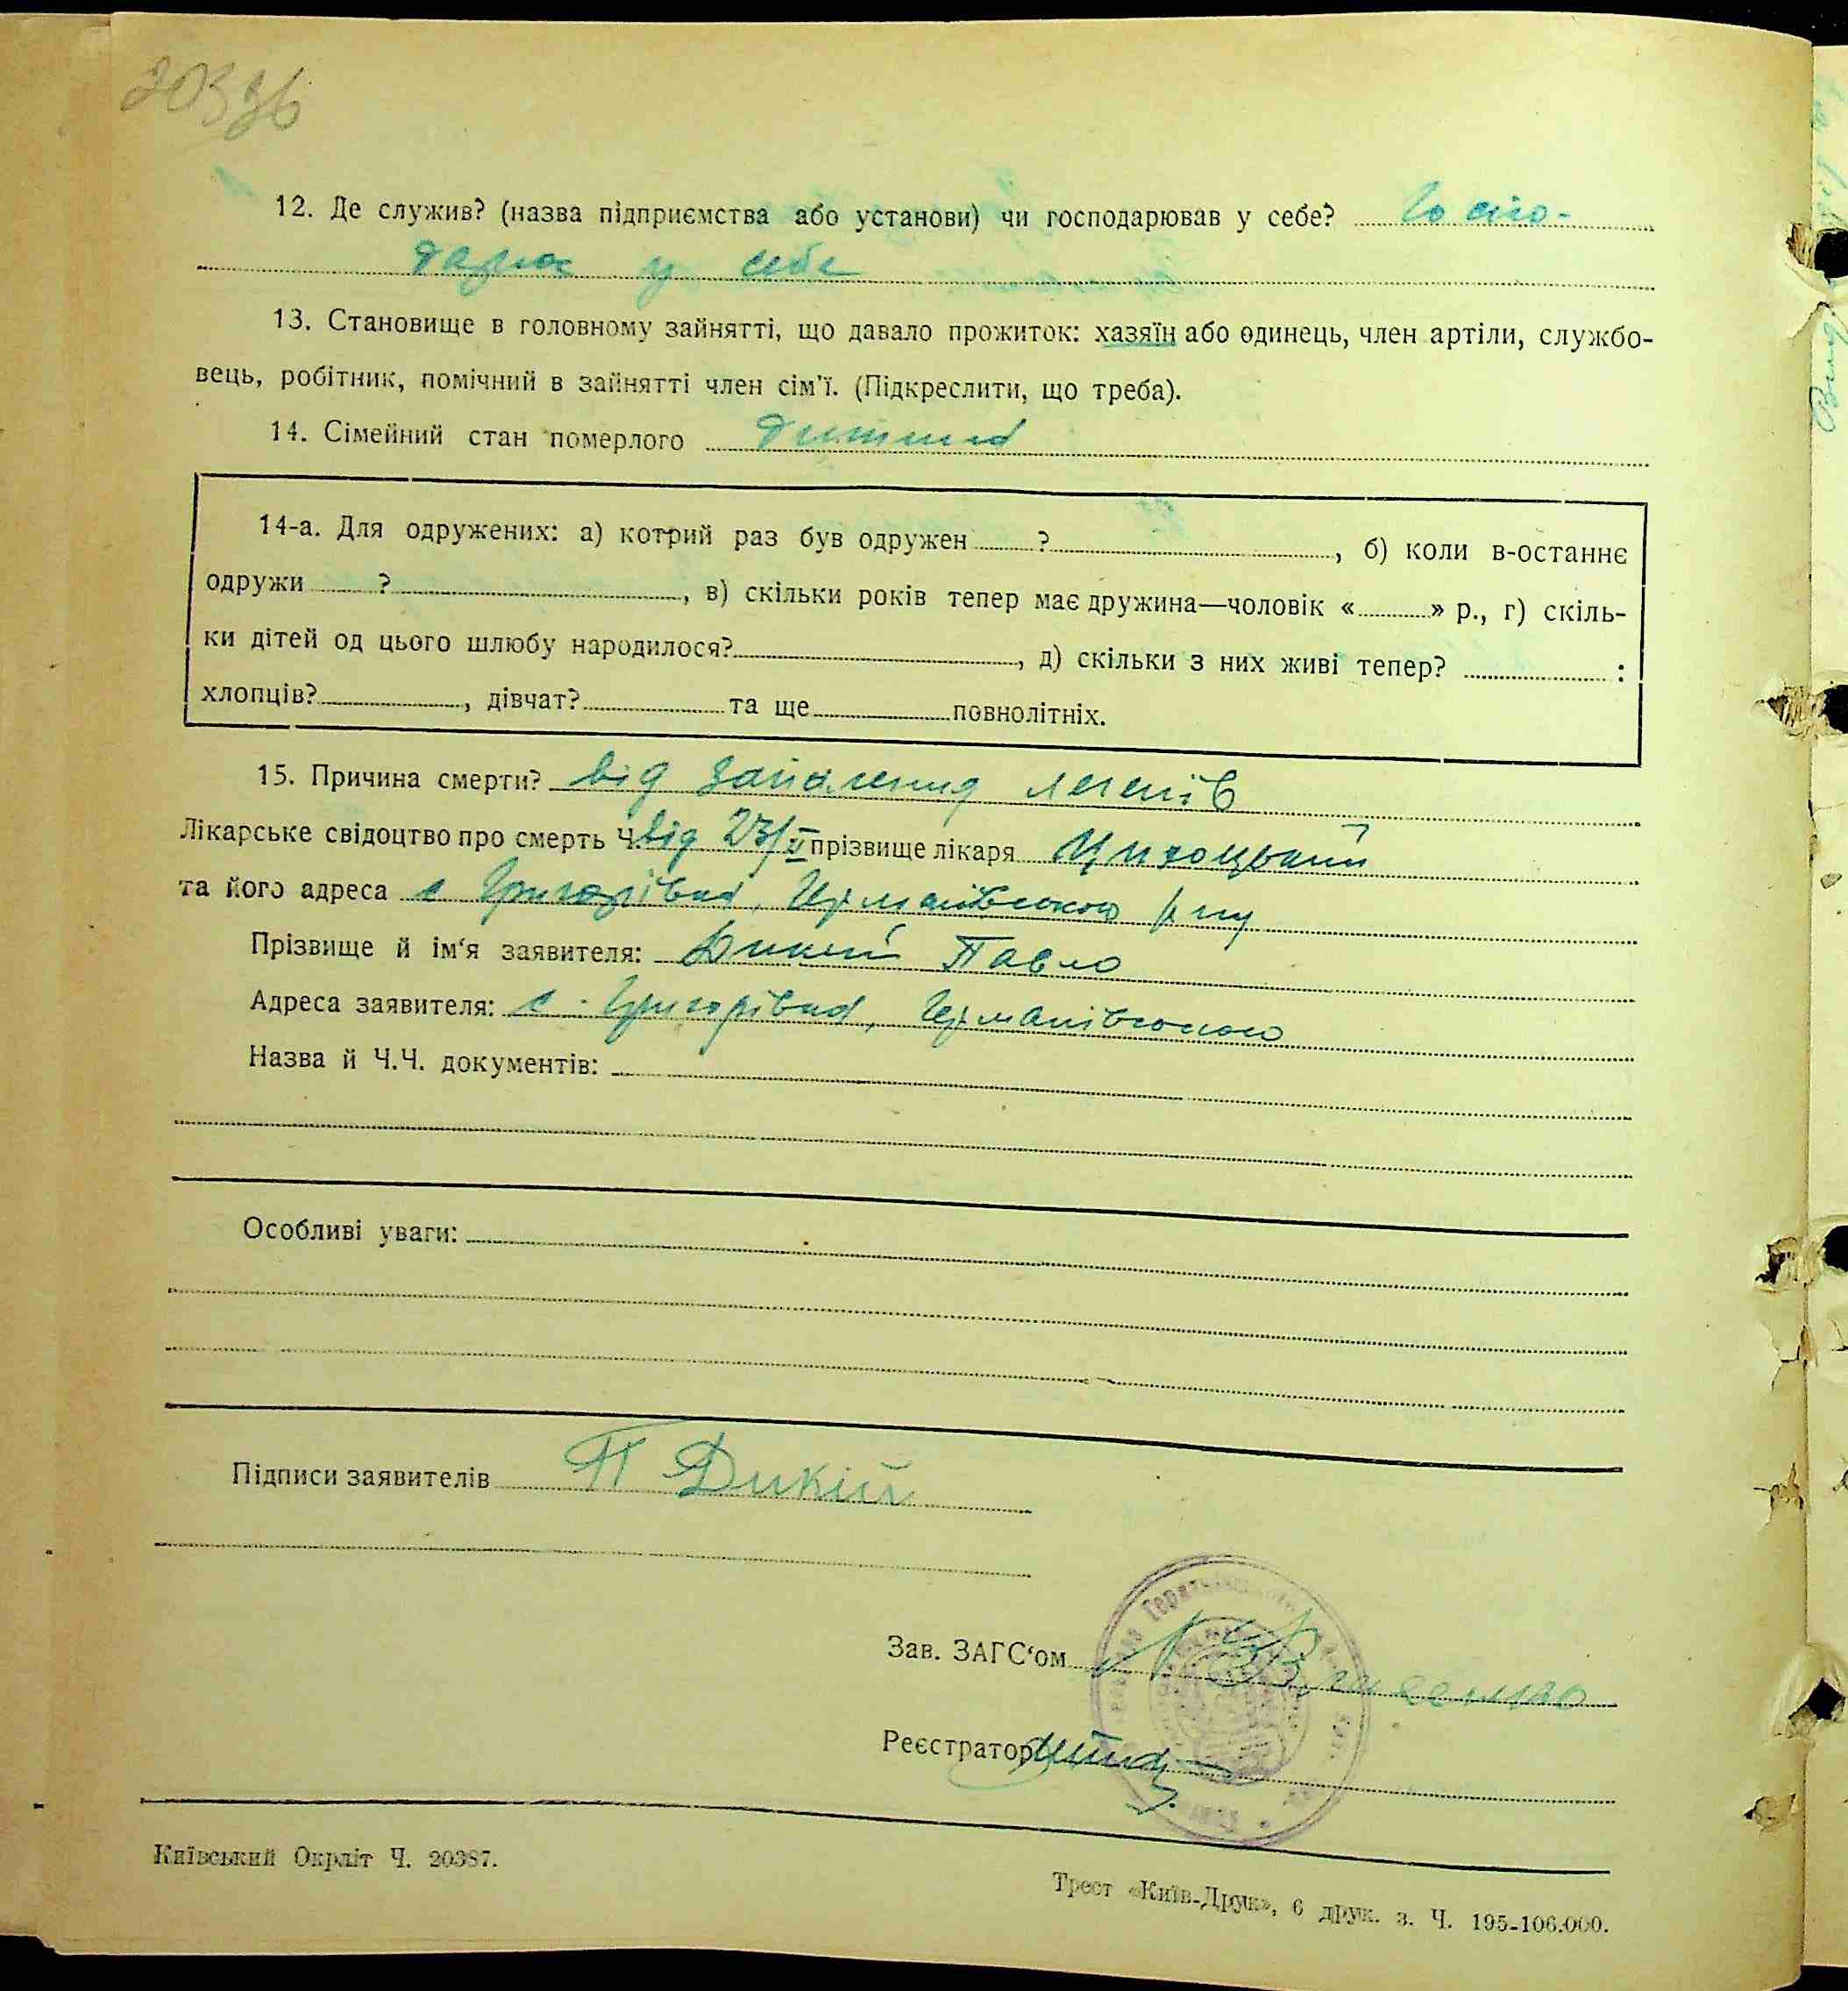 12. Де служив? (назва підприємства або установи) чи господарював у себе? Госпо-
дарює у себе
13. Становище в головному зайнятті, що давало прожиток: хазяїн або одинець, член артіли, службо-
вець, робітник, помічний в зайнятті член сім'ї. (Підкреслити, що треба).
14. Сімейний стан померлого дитина
14-а. Для одружених: а) котрий раз був одружен ? , б) коли в-останнє
одружи ? , в) скільки років тепер має дружина—чоловік « » р., г) скіль-
ки дітей од цього шлюбу народилося? , д) скільки з них живі тепер? :
хлопців? , дівчат? та ще повнолітніх.
15. Причина смерти? від запалення легенів
Лікарське свідоцтво про смерть Ч. від 23/ прізвище лікаря
та його адреса с Григорівка, Германівського р ну
Прізвище й ім'я заявителя: Дикий Павло
Адреса заявителя: с. Григорівка, Германівського
Назва й Ч.Ч. документів:
Особливі уваги:
Підписи заявителів П Дикій
Зав. ЗАГС'ом
Реєстратор
Київський Окрліт Ч. 20387.
Трест «Київ-Друк», 6 друк. з. Ч. 195-106.000.